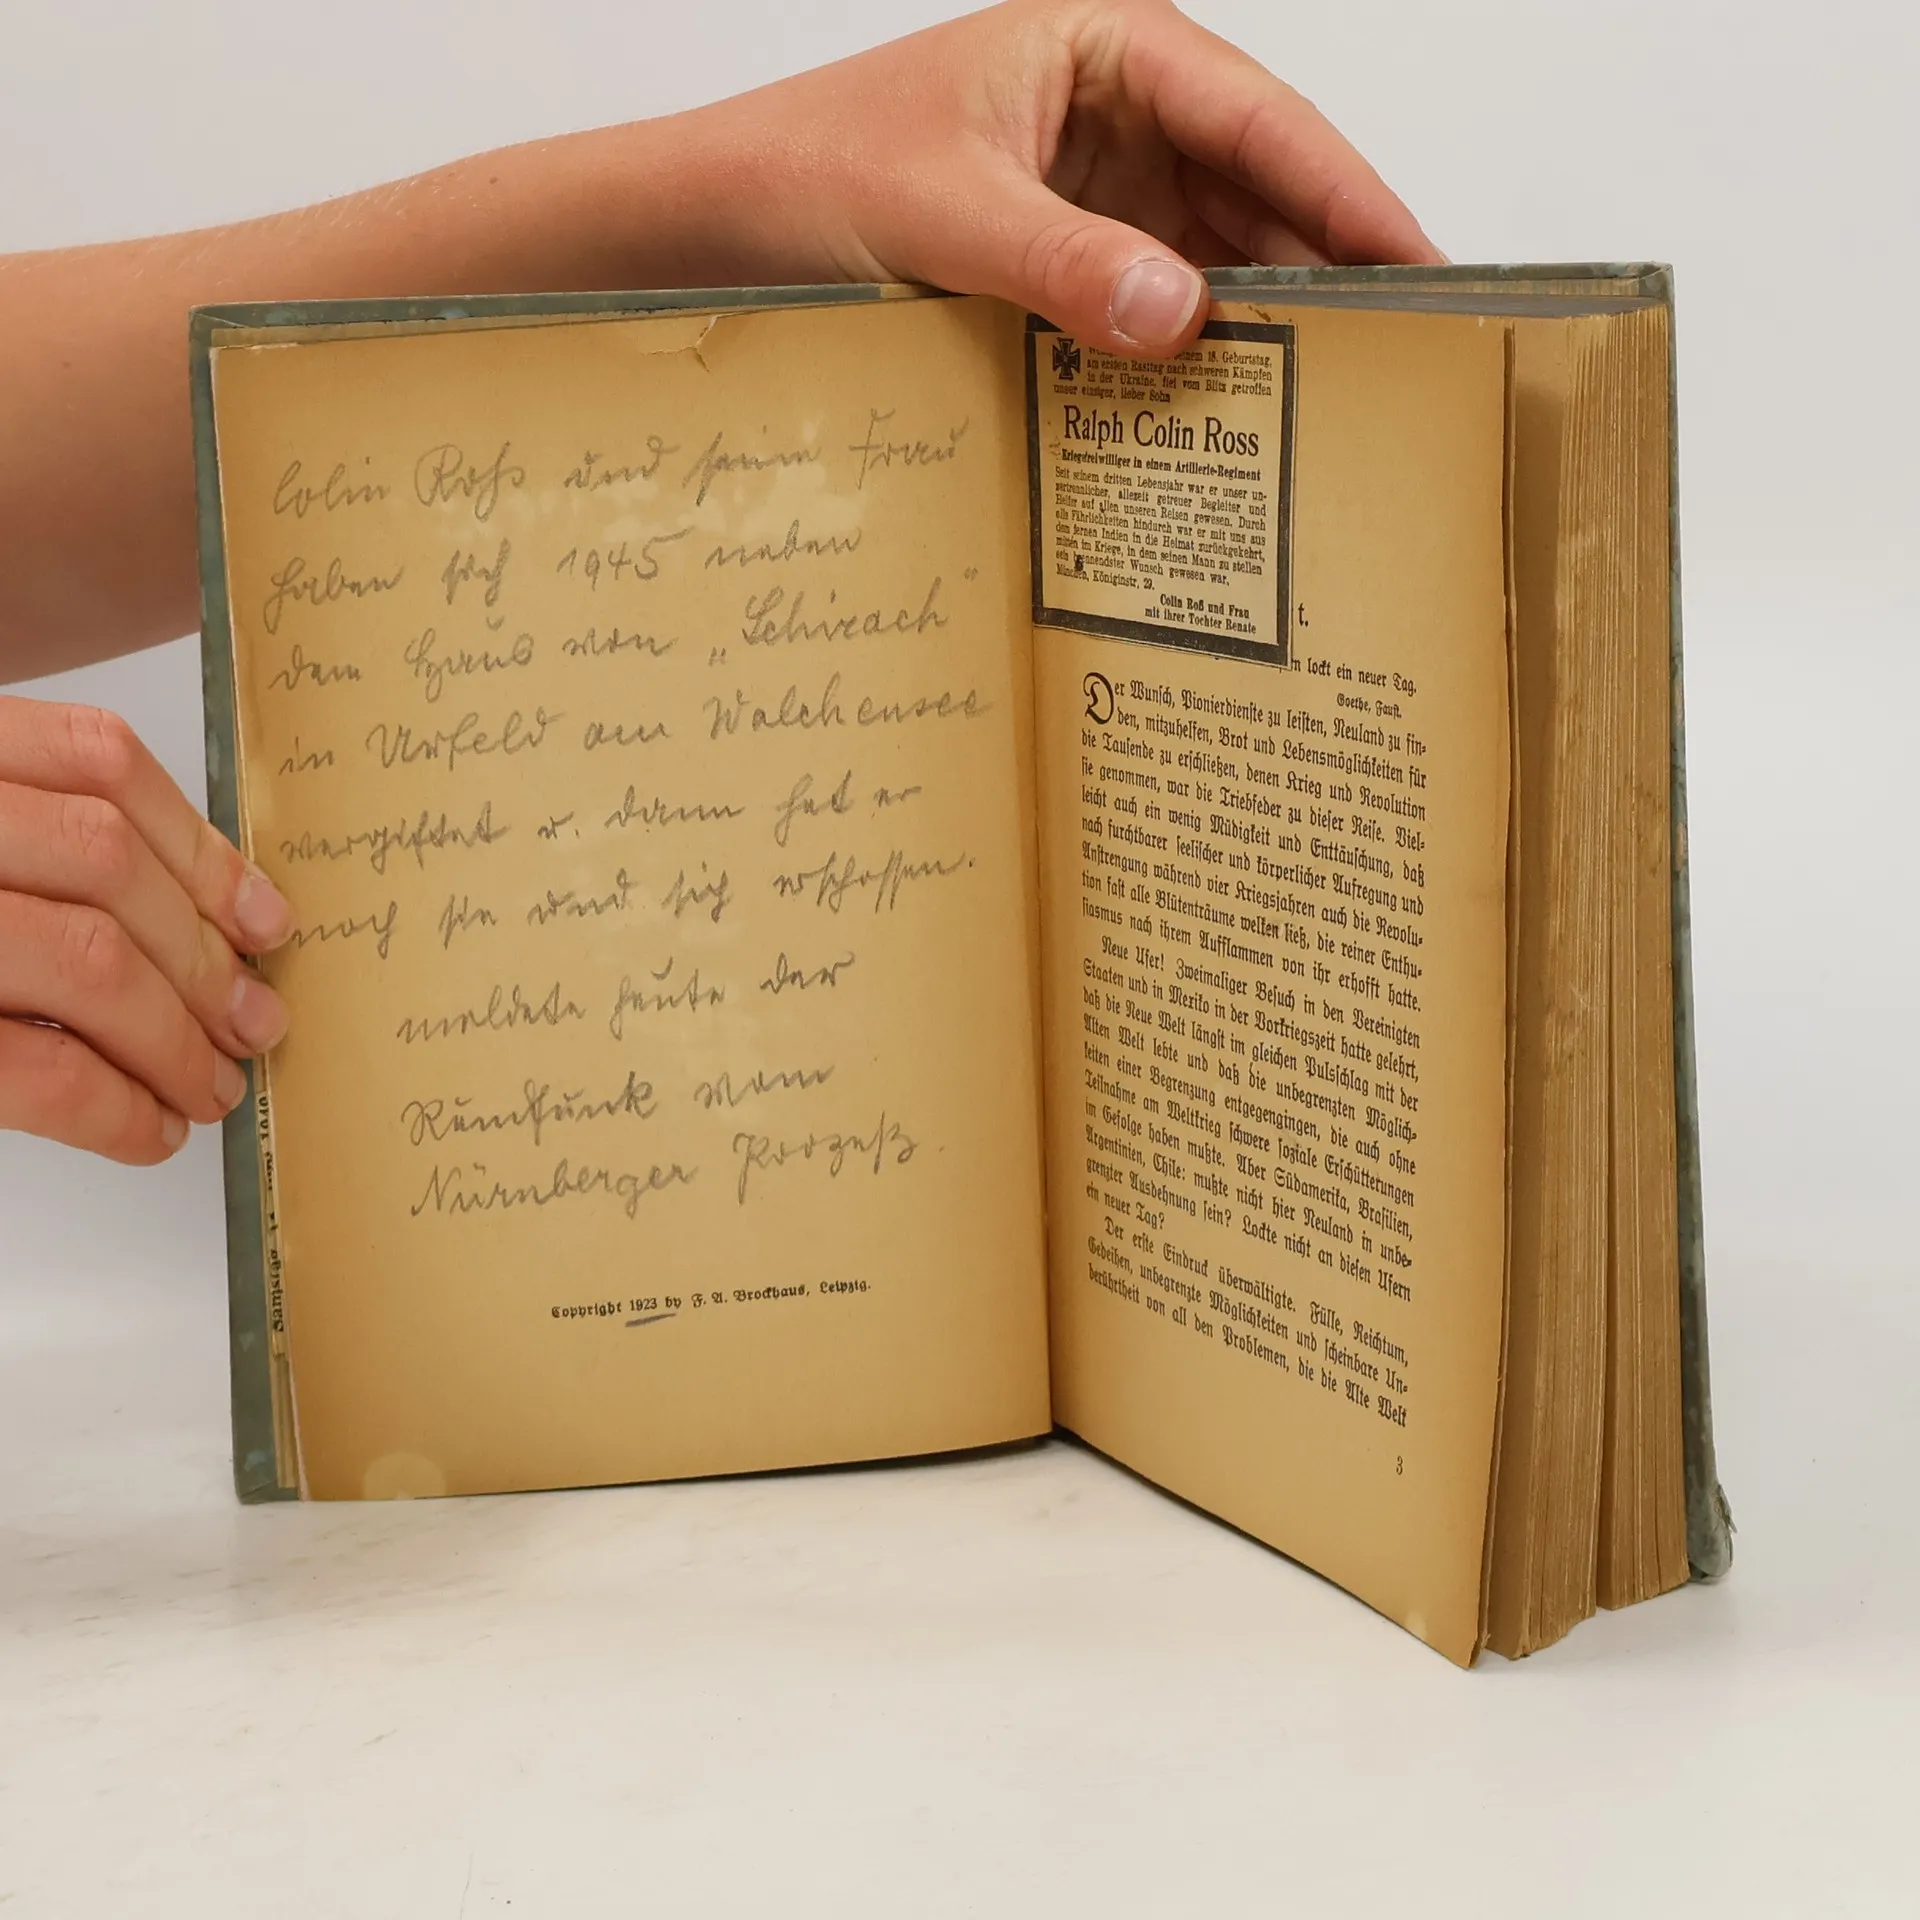 Colin Roß und seine Frau
haben sich 1945 neben
dem Haus von „Schirach"
in Urfeld am Walchensee
vergiftet u. dann hat er
noch sie und sich erschossen.
meldete heute der
Rundfunk vom
Nürnberger Prozeß.
Copyright 1923 by F. A. Brockhaus, Leipzig.
Samstag
seinem 18. Geburtstag,
am ersten Rasttag nach schweren Kämpfen
in der Ukraine, fiel vom Blitz getroffen
unser einziger, lieber Sohn
Ralph Colin Ross
Kriegsfreiwilliger in einem Artillerie-Regiment
Seit seinem dritten Lebensjahr war er unser un-
zertrennlicher, allezeit getreuer Begleiter und
Helfer auf allen unseren Reisen gewesen. Durch
alle Fährlichkeiten hindurch war er mit uns aus
dem fernen Indien in die Heimat zurückgekehrt,
mitten im Kriege, in dem seinen Mann zu stellen
sein brennendster Wunsch gewesen war.
München, Königinstr. 29.
Colin Roß und Frau
mit ihrer Tochter Renate
t.
n lockt ein neuer Tag.
Goethe, Faust.
Der Wunsch, Pionierdienste zu leisten, Neuland zu fin-
den, mitzuhelfen, Brot und Lebensmöglichkeiten für
die Tausende zu erschließen, denen Krieg und Revolution
sie genommen, war die Triebfeder zu dieser Reise. Viel-
leicht auch ein wenig Müdigkeit und Enttäuschung, daß
nach furchtbarer seelischer und körperlicher Aufregung und
Anstrengung während vier Kriegsjahren auch die Revolu-
tion fast alle Blütenträume welken ließ, die reiner Enthu-
siasmus nach ihrem Aufflammen von ihr erhofft hatte.
Neue Ufer! Zweimaliger Besuch in den Vereinigten
Staaten und in Mexiko in der Vorkriegszeit hatte gelehrt,
daß die Neue Welt längst im gleichen Pulsschlag mit der
Alten Welt lebte und daß die unbegrenzten Möglich-
keiten einer Begrenzung entgegengingen, die auch ohne
Teilnahme am Weltkrieg schwere soziale Erschütterungen
im Gefolge haben mußte. Aber Südamerika, Brasilien,
Argentinien, Chile: mußte nicht hier Neuland in unbe-
grenzter Ausdehnung sein? Lockte nicht an diesen Ufern
ein neuer Tag?
Der erste Eindruck überwältigte. Fülle, Reichtum,
Gedeihen, unbegrenzte Möglichkeiten und scheinbare Un-
berührtheit von all den Problemen, die die Alte Welt
3